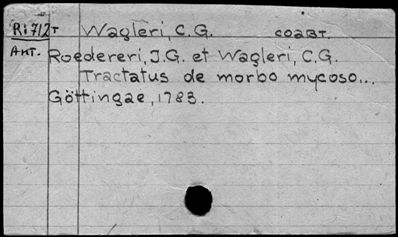 Ri 712т Wagleri, C.G. соавт.
Авт. Roedereri, J.G. et Wagleri, C.G.
Tractatus de morbo mycoso...
Göttingae, 1783.